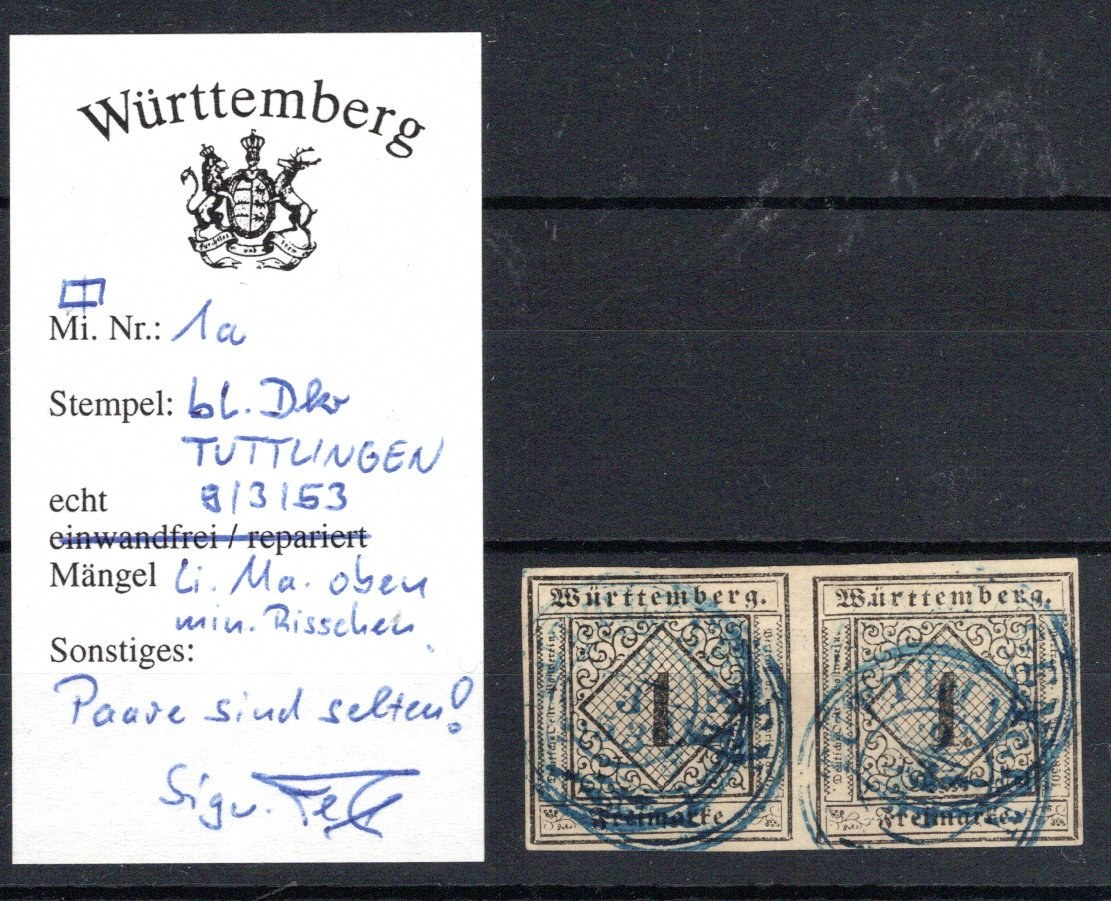 Württemberg
furchtlos und trew
Mi. Nr.: 1a
Stempel: bl. Dkr
TUTTLINGEN
echt 9/3/53
einwandfrei / repariert
Mängel li. Ma. oben
min. Risschen
Sonstiges:
Paare sind selten!
Sign.
Württemberg.
1
Freimarke
Württemberg.
1
Freimarke